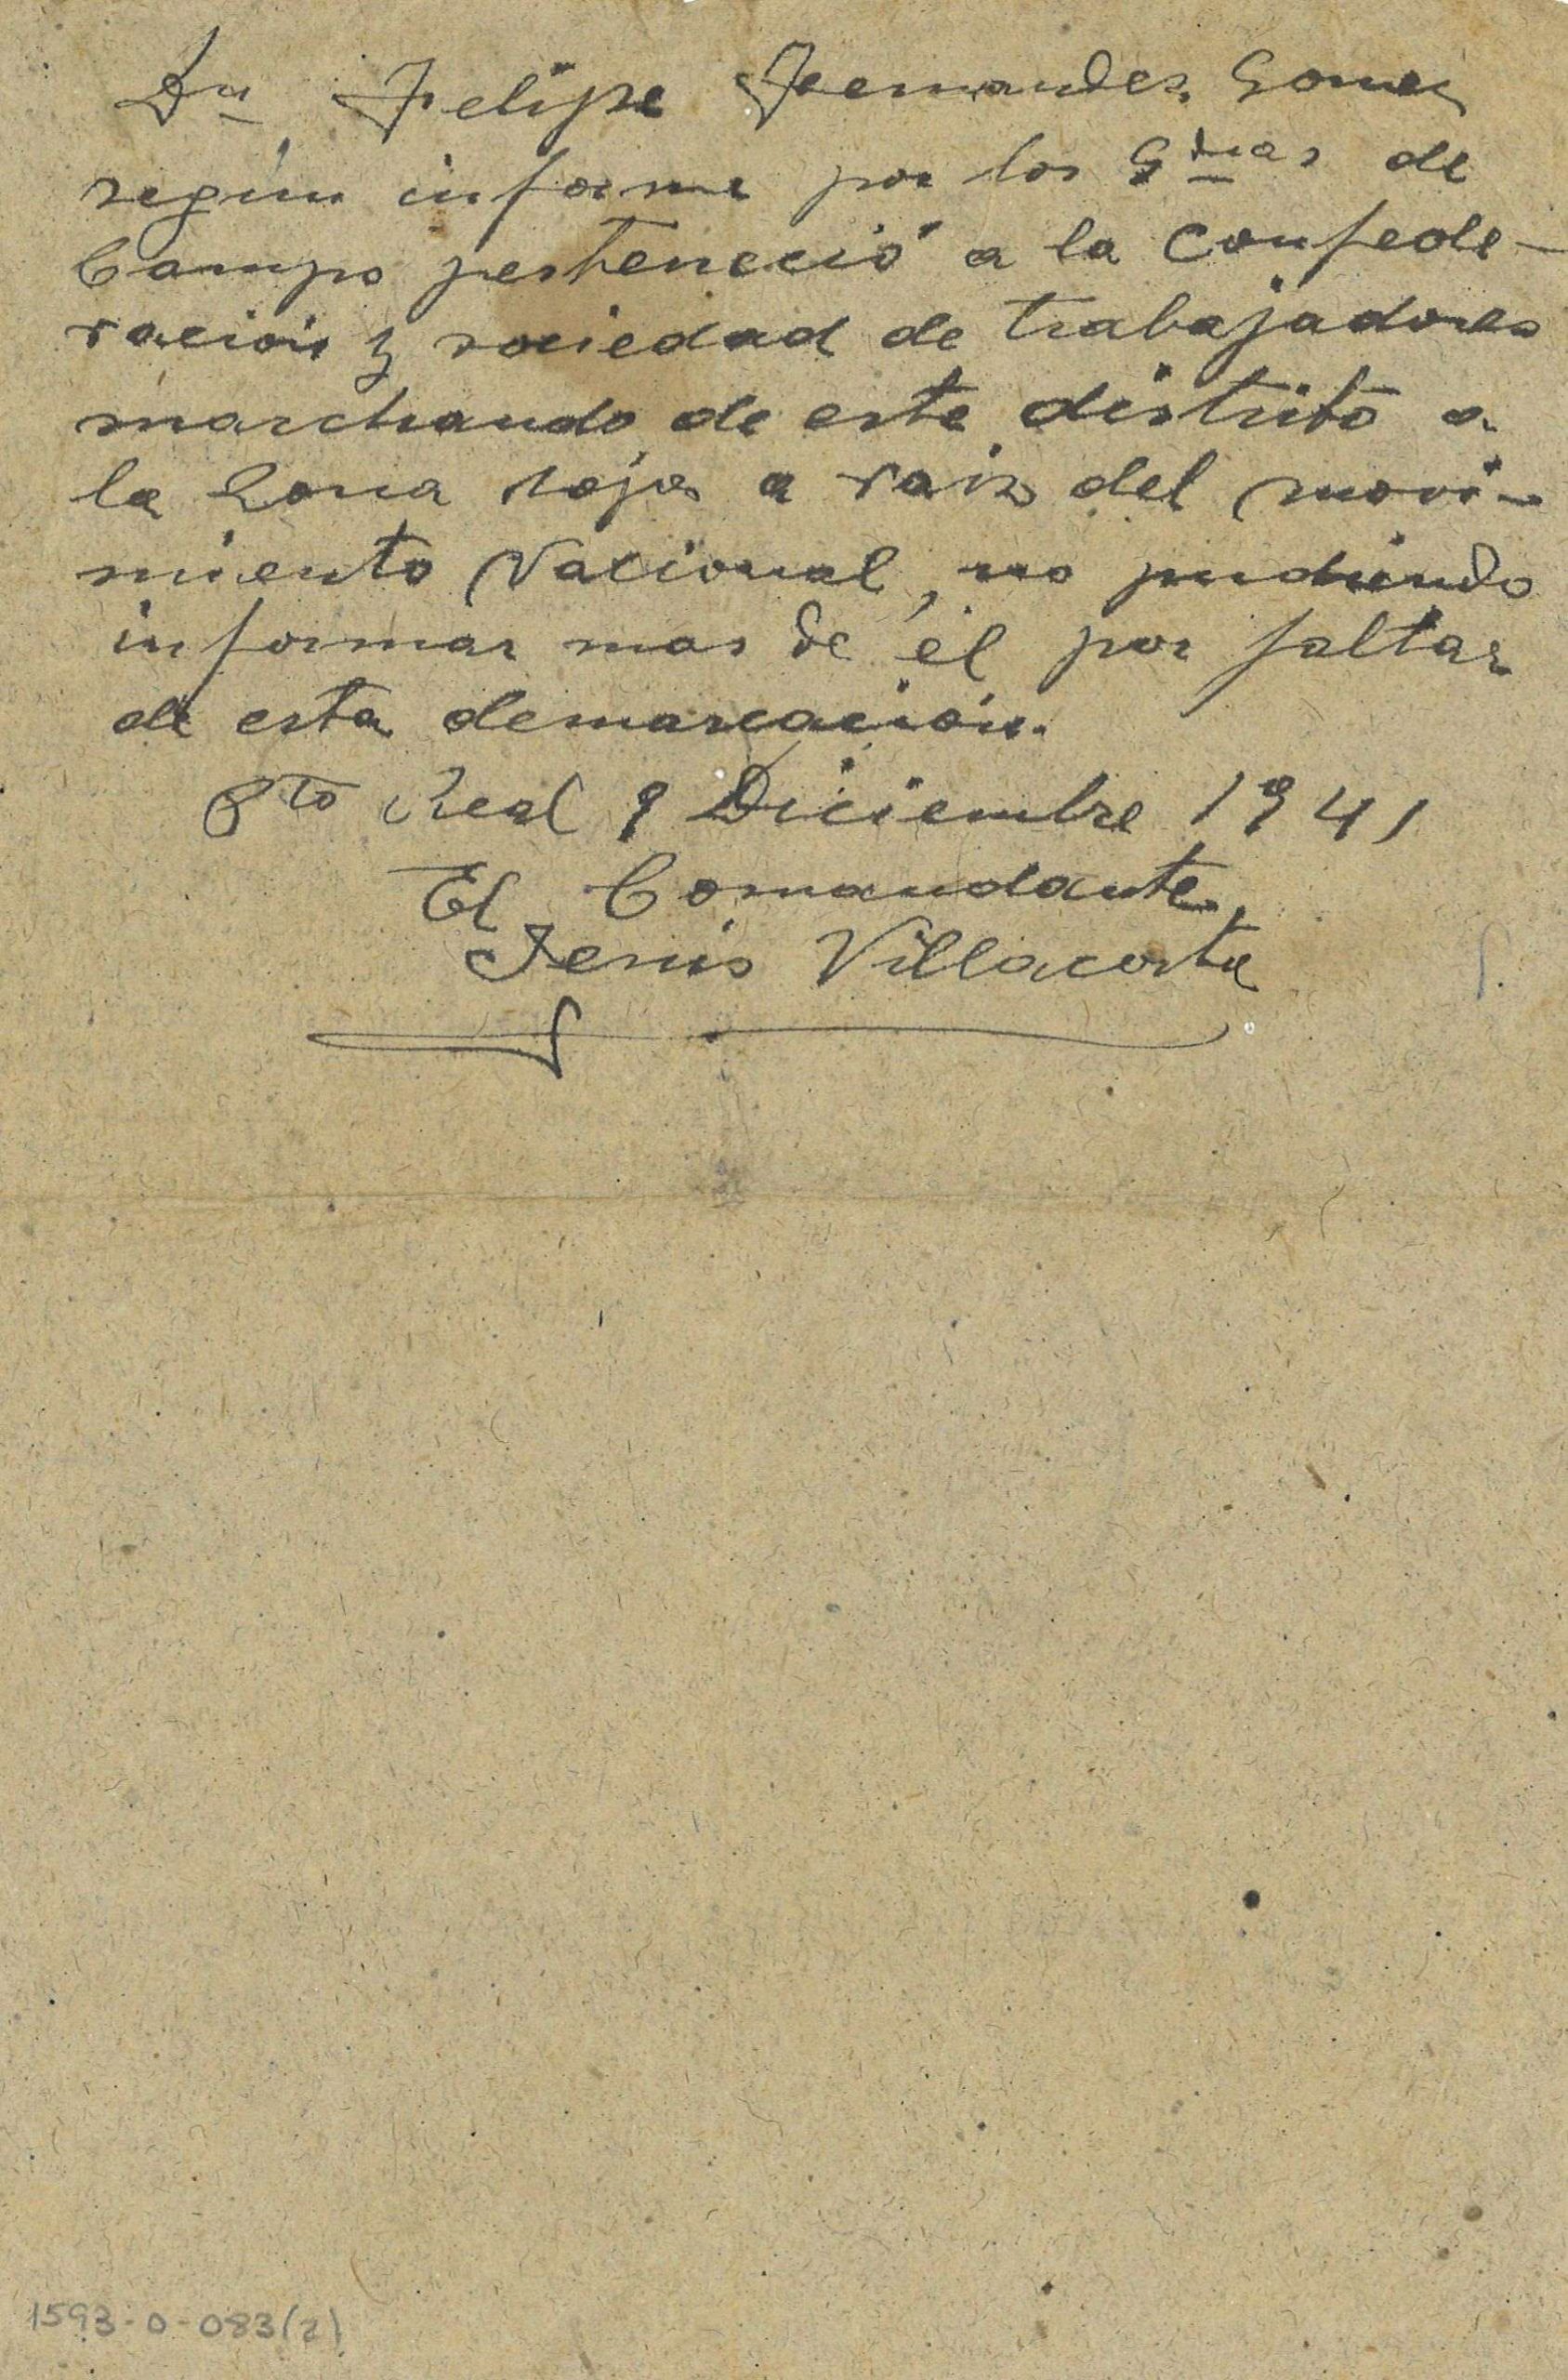 Dn Felipe Fernandes Gomez
según informe por los Gdias de
Campo perteneció a la Confede-
ración y sociedad de trabajadores
marchando de este distrito a
la Zona roja a raiz del movi-
miento Nacional, no pudiendo
informar mas de él por faltar
de esta demarcación.
Pto Real 9 Diciembre 1941
El Comandante
Villacorta
1593-0-083(2)